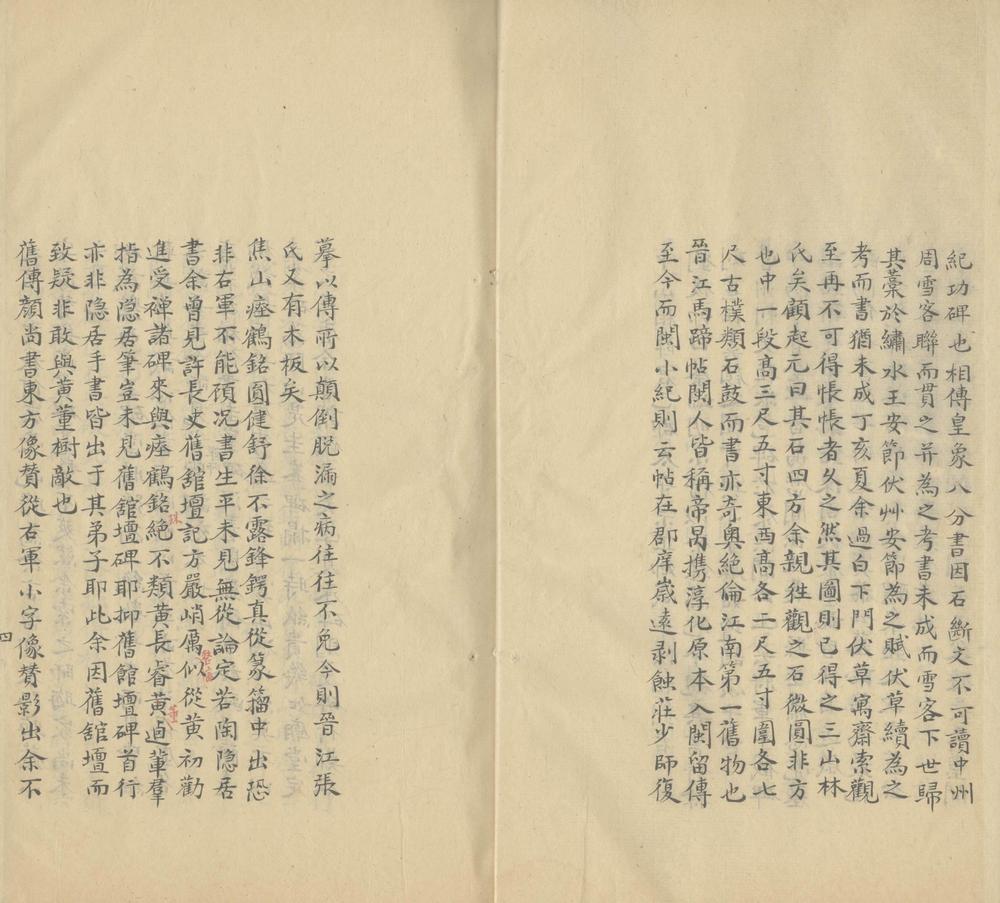 紀功碑也相傳皇象八分書因石斷文不可讀中州
周雪客聯而貫之并為之考書未成而雪客下世歸
其藁於繡水王安節伏艸安節為之賦伏草續為之
考而書猶未成丁亥夏余過白下門伏草寓齋索觀
至再不可得悵悵者久之然其圖則已得之三山林
氏矣顧起元曰其石四方余親徃觀之石微圓非方
也中一段髙三尺五寸東西髙各二尺五寸圍各七
尺古樸類石鼓而書亦奇奧絕倫江南第一舊物也
晉江馬蹄帖閩人皆稱帝昺携淳化原本入閩留傳
至今而閩小紀則云帖在郡庠歲遠剥蝕莊少師復
摹以傳所以顛倒脱漏之病往往不免今則晉江張
氏又有木板矣
焦山瘞鶴銘圓健舒徐不露鋒鍔真從篆籀中出恐
非右軍不能碩况書生平未見無從論定若陶隐居
書余曾見許長史舊舘壇記方嚴峭厲似從黄初勸
進受禪諸碑來與瘞鶴銘絕不類黄長睿黄逌輩羣
指為隐居筆豈未見舊舘壇碑耶抑舊館壇碑首行
亦非隐居手書皆出于其弟子耶此余因舊舘壇而
致疑非敢與黄董樹敵也
舊傳顔尚書東方像賛從右軍小字像賛影出余不
殊
董
四